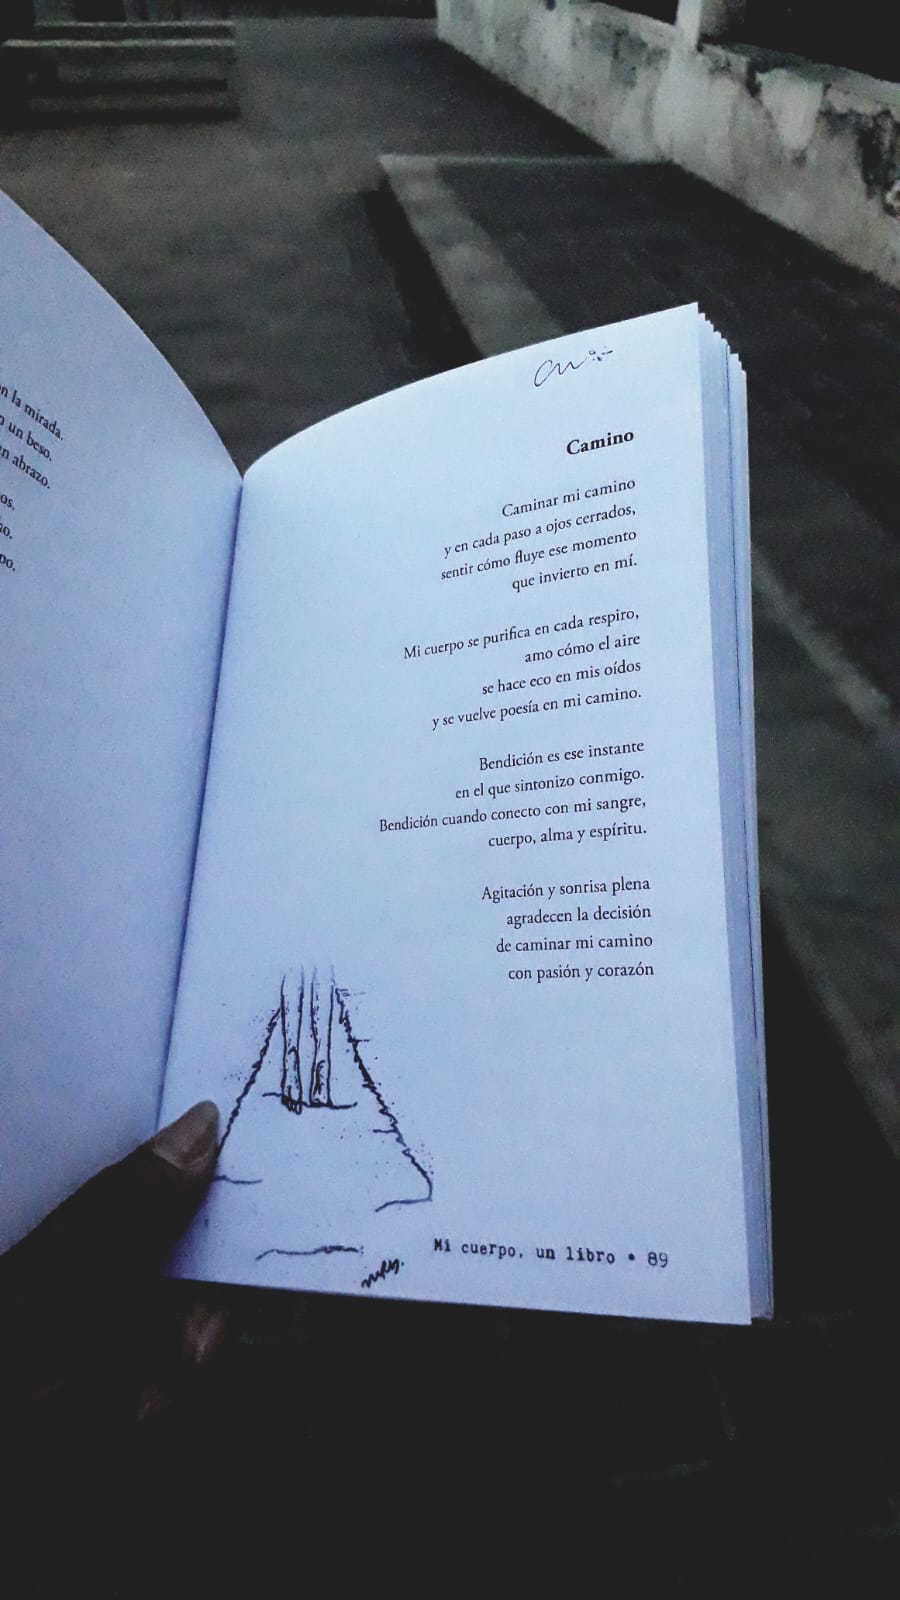 n la mirada.
un beso.
n abrazo.
os,
Camino
Caminar mi camino
y en cada paso a ojos cerrados,
sentir cómo fluye ese momento
que invierto en mí.
Mi cuerpo se purifica en cada respiro,
amo cómo el aire
se hace eco en mis oídos
y se vuelve poesía en mi camino.
Bendición es ese instante
en el que sintonizo conmigo.
Bendición cuando conecto con mi sangre,
cuerpo, alma y espíritu.
Agitación y sonrisa plena
agradecen la decisión
de caminar mi camino
con pasión y corazón
Mi cuerpo, un libro • 89